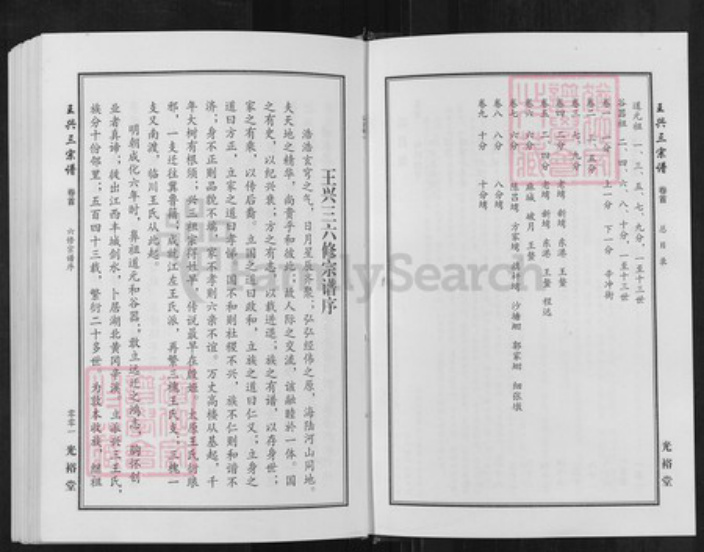 王兴三宗谱
卷首
总目录
道元祖 一、三、五、七、九分，一至十三世
谷器祖 二、四、六、八、十分，一至十三世
卷一 一分 上一分 下一分 辛冲街
卷二 三、五分
卷三 七、九分
卷四 二分 老塆 新塆 东港 王蛰
卷五 二、四分 老塆 新塆 东港 王蛰 程远
卷六 六分 麻城 坡月 王蛰
卷七 六分 陈吕塆 方家塆 沙塘坳 郭家坳 细张塆
卷八 八分 八分塆
卷九 十分 十分塆
光裕堂
王兴三六修宗谱序
浩浩玄穹之气，日月星辰齐聚；弘弘经伟之原，海陆河山同地。
夫天地之精华，尚贵乎和彼此，故人际之交流，该融睦於一体。国
之有史，以纪兴衰；方之有志，以载进退；族之有谱，以存身世；
家之有乘，以传后裔。立国之道曰政和，立族之道曰仁义；立身之
道曰方正，立家之道曰孝悌。国不和则社稷不兴，族不仁则和谐不
济；身不正则品貌不端，家不孝则六亲不谊。万丈高楼从基起，千
年大树有根须；兴三祖宗得姓早，传说最早在殷姬。太原王氏衍琅
邪，一支迁往冀鲁籍；成就江左王氏派，再繁三槐王氏支；三槐一
支又南渡，临川王氏从此起。
明朝成化六年时，鼻祖道元和谷器；敢立远迁之鸿志，胸怀创
业者真谛；徙出江西丰城剑水，卜居湖北黄冈李溪。立派兴三王王氏，
族分十份邻里；五百四十三载，繁衍二十多世。为敦本收族，继祖
王兴三宗谱
卷首
六修宗谱序
零零一
光裕堂
FamilySearch